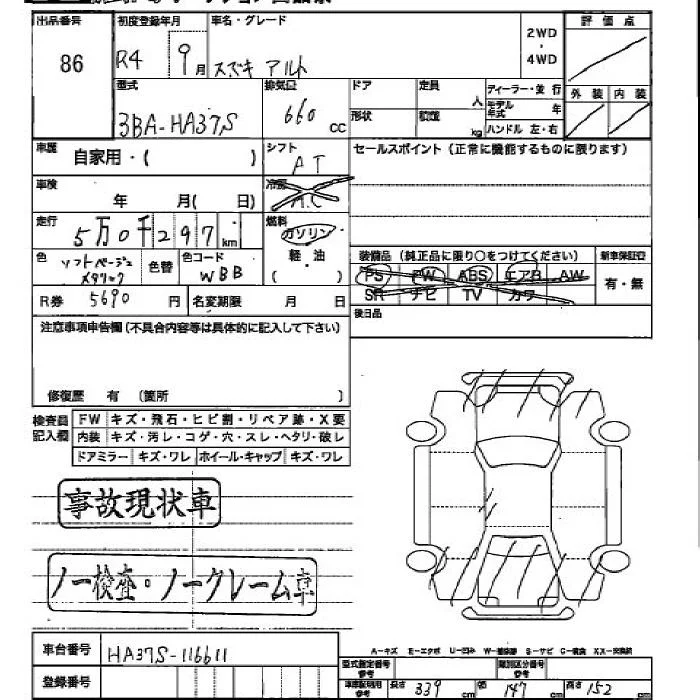 出品番号 初度登録年月 車名・グレード 2WD ・ 4WD 評価点
86 R4 9月 スズキ アルト
外装 内装
型式 排気量 ドア 定員 人 ディーラー・並行
3BA-HA37S 660 CC 形状 積載 kg モデル年式 年
ハンドル 左・右
車歴 自家用・( ) シフト AT セールスポイント(正常に機能するものに限ります)
車検 年 月( 日) 冷房 A.C
走行 5万0千297km 燃料 ガソリン 軽・油 ( )
色 ソフトベージュメタリック 色替 色コード WBB
装備品(純正品に限り○をつけてください) 新車保証書
PS PW ABS エアB AW 有・無
SR ナビ TV カワ
R券 5690円 名変期限 月 日
後日品
注意事項申告欄(不具合内容等は具体的に記入して下さい)
修復歴 有 (箇所 )
検査員記入欄 FW キズ・飛石・ヒビ割・リペア跡・X要
内装 キズ・汚レ・コゲ・穴・スレ・ヘタリ・破レ
ドアミラー キズ・ワレ ホイール・キャップ キズ・ワレ
事故現状車
ノー検査・ノークレーム車
車台番号 HA37S-116611
登録番号
A-キズ E-エクボ U-凹み W-補修跡 S-サビ C-腐食 XX-交換済
型式指定番号 参考 類別区分番号 参考
車車証明用 参考 長さ 339cm 幅 147cm 高さ 152cm